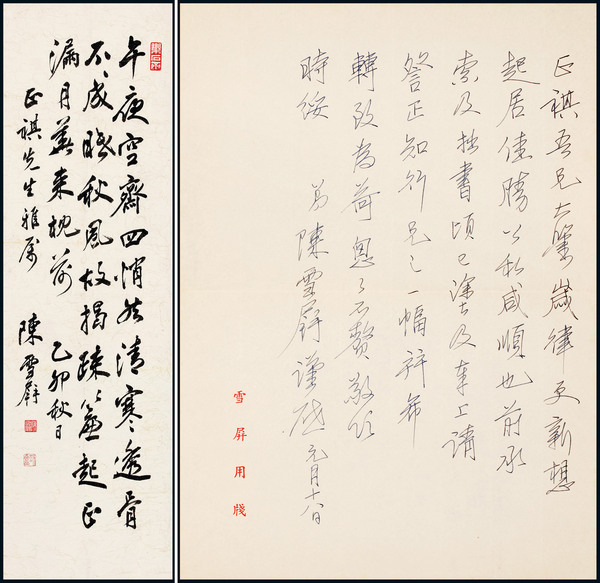 午夜空齋四悄然清寒透骨
不成眠秋風故揭疎簾起正
漏月華來枕前 乙卯秋日
正祺先生雅屬 陳雪屏
正祺吾兄大鑒歲律更新想
起居佳勝公私咸順也前承
索及拙書頃已塗奉上請
詧正知行兄之一幅並希
轉致為荷匆匆不贅敬頌
時綏 弟陳雪屏謹啟元月十八日
雪屏用牋